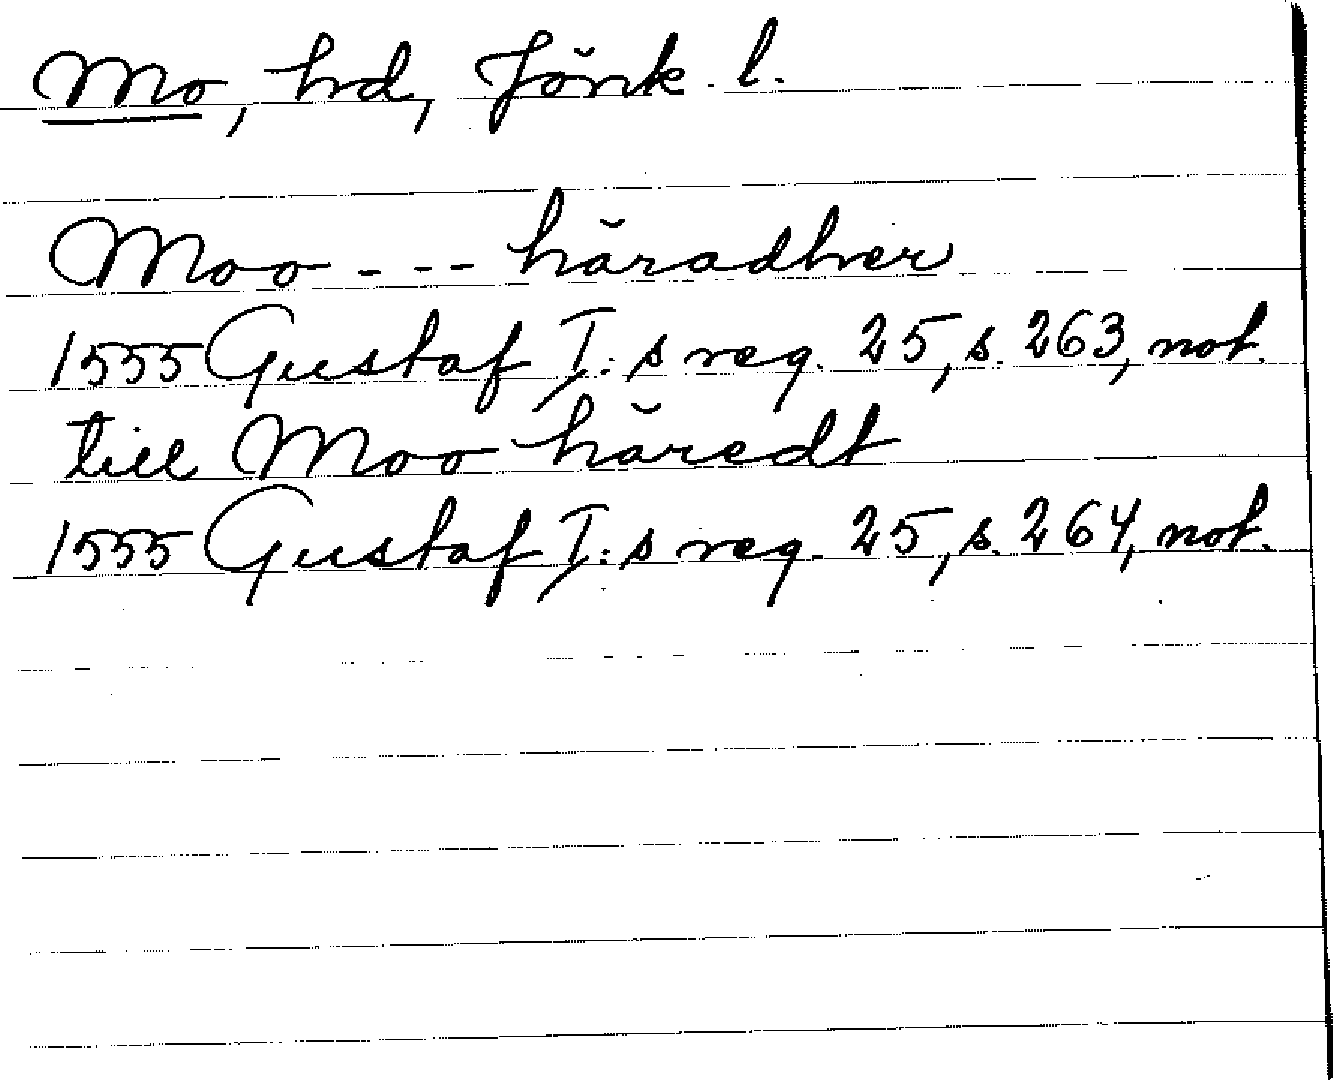 Mo, hd, Jönk. l.
Moo - - - häradher
1555 Gustaf I:s reg. 25, s. 263, not.
till Moo häredt
1555 Gustaf I:s reg. 25, s. 264, not.